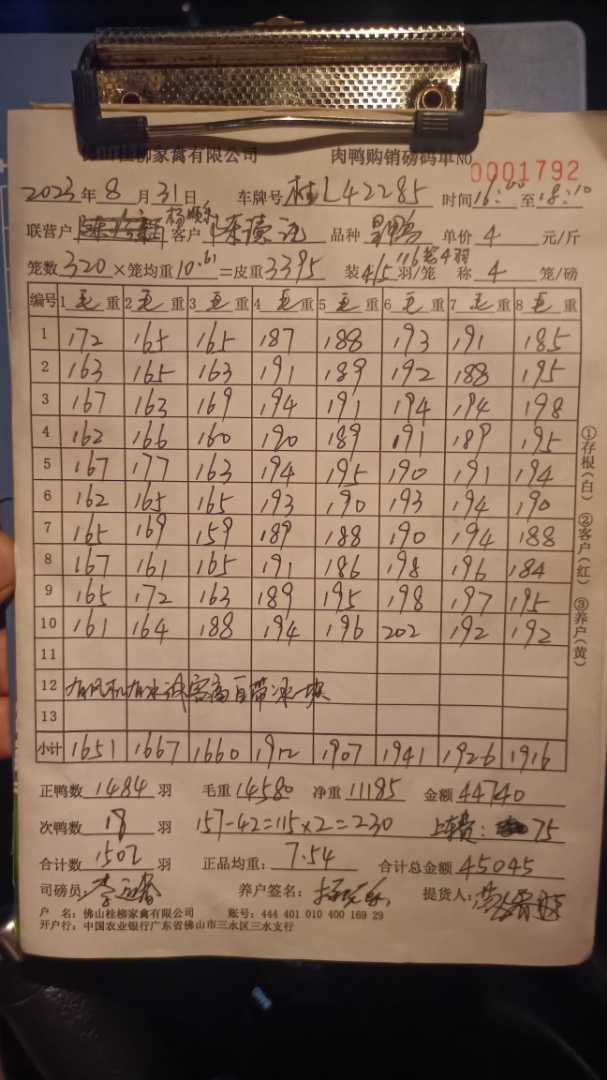 佛山桂柳家禽有限公司 肉鸭购销磅码单 NO 0001792
2023年8月31日 车牌号 桂L42285 时间16:00至18:10
联营户 杨顺乐 客户 品种 单价 4 元/斤
笼数 320 ×笼均重 10.61 =皮重 3395 装 4/5 羽/笼 116笼4羽 称 4 笼/磅
编号 1 毛 重 2 毛 重 3 毛 重 4 毛 重 5 毛 重 6 毛 重 7 毛 重 8 毛 重
1 172 165 165 187 188 193 191 185
2 163 165 163 191 189 192 188 195
3 167 163 169 194 191 194 194 198
4 162 166 160 190 189 191 189 195
5 167 177 163 194 195 190 191 194
6 162 165 165 193 190 193 194 190
7 165 169 159 189 188 190 194 188
8 167 161 165 191 186 198 196 184
9 165 172 163 189 195 198 197 195
10 161 164 188 194 196 202 192 192
11
12
13
小计 1651 1667 1660 1912 1907 1941 1926 1916
①存根(白) ②客户(红) ③养户(黄)
正鸭数 1484 羽 毛重 14580 净重 11185 金额 44740
次鸭数 18 羽 157-42=115×2=230 上车费: 75
合计数 1502 羽 正品均重: 7.54 合计总金额 45045
司磅员: 养户签名: 杨顺乐 提货人:
户 名: 佛山桂柳家禽有限公司 账号: 444 401 010 400 169 29
开户行: 中国农业银行广东省佛山市三水区三水支行